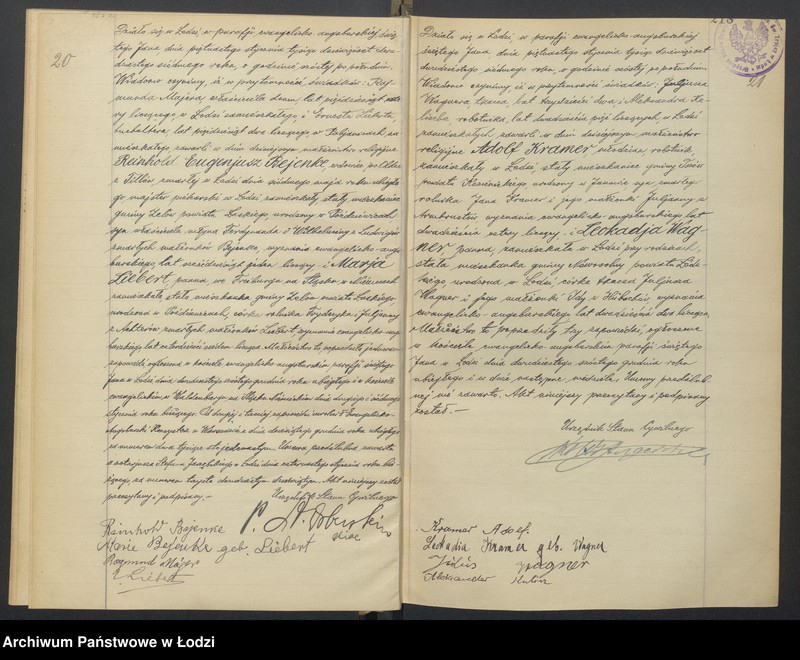 20
Działo się w Łodzi w parafji ewangelicko-augsburskiej świę-
tego Jana dnia piętnastego stycznia tysiąc dziewięćset dwu-
dziestego siódmego roku, o godzinie szóstej po południu.
Wiadomo czynimy, że w przytomności świadków: Raj-
munda Majera właściciela domu, lat pięćdziesiąt
liczącego, w Łodzi zamieszkałego i Ernesta Liberta,
buchaltera, lat pięćdziesiąt dwa liczącego w Pabjanicach za-
mieszkałego zawarto w dniu dzisiejszym małżeństwo religijne
Reinhold Eugenjusz Bejenke, wdowiec po
z zmarłej w Łodzi dnia siódmego maja roku ubiegłe-
go majster piekarski w Łodzi zamieszkały, stały mieszkaniec
gminy Zelów powiatu Łaskiego, urodzony w
syn właściciela młyna Ferdynanda i Wilhelminy z Ludwigów
zmarłych małżonków Bejenke, wyznania ewangelicko-augs-
burskiego, lat liczący i Marja
Liebert, panna we Freiburgu na Śląsku w Niemczech
zamieszkała stała mieszkanka gminy Zelów powiatu Łaskiego,
urodzona w córka rolnika Fryderyka i Juljanny
z zmarłych małżonków Liebert wyznania ewangelicko-augs-
burskiego lat czterdzieści siedem licząca. Małżeństwo to poprzedziły jedna
zapowiedź ogłoszona w kościele ewangelicko-augsburskim parafji świętego
Jana w Łodzi dnia dwudziestego szóstego grudnia roku ubiegłego i w kościele
ewangelickim w Waldenburgu na Śląsku niemieckim dnia drugiego i
stycznia roku bieżącego. Od drugiej i trzeciej zapowiedzi zwolnił Ewangelicko-
Augsburski Konsystorz w Warszawie dnia dwudziestego grudnia roku ubiegłego
za numerem dwa tysiące sto jedenastym. Umowę przedślubną zawarto
u notarjusza Stefana w Łodzi dnia czternastego stycznia roku bie-
żącego, za numerem Akt niniejszy został
przeczytany i podpisany.—
Urzędnik Stanu Cywilnego
Reinhold Bejenke
Marie Bejenke geb. Liebert
Rajmund Majer
E. Liebert
218
21
Działo się w Łodzi, w parafji ewangelicko-augsburskiej
świętego Jana dnia piętnastego stycznia tysiąc dziewięćset
dwudziestego siódmego roku, o godzinie szóstej po południu.
Wiadomo czynimy, że w przytomności świadków: Juljusza
Wagnera, tkacza, lat trzydzieści dwa i Aleksandra
robotnika, lat dwadzieścia pięć liczących, w Łodzi
zamieszkałych zawarto w dniu dzisiejszym małżeństwo
religijne Adolf Kramer, młodzian robotnik
zamieszkały w Łodzi stały mieszkaniec gminy
powiatu urodzony w syn zmarłego
rolnika Jana Kramer i jego małżonki Juljanny z
wyznania ewangelicko-augsburskiego, lat
dwadzieścia cztery liczący i Leokadja Wag-
ner panna, zamieszkała w Łodzi przy rodzicach,
stała mieszkanka gminy Nowosolna powiatu Łódz-
kiego, urodzona w Łodzi córka tkacza Juljusza
Wagner i jego małżonki Idy z wyznania
ewangelicko-augsburskiego lat dwadzieścia dwa licząca,
Małżeństwo to poprzedziły trzy zapowiedzi, ogłoszone
w kościele ewangelicko-augsburskim parafji świętego
Jana w Łodzi dnia dwudziestego szóstego grudnia roku
ubiegłego i w dwie następne niedziele. Umowy przedślub-
nej nie zawarto. Akt niniejszy przeczytany i podpisany
został.—
Urzędnik Stanu Cywilnego
Kramer Adolf.
Leokadia Kramer geb. Wagner
Julius Wagner
Aleksander
Archiwum Państwowe w Łodzi